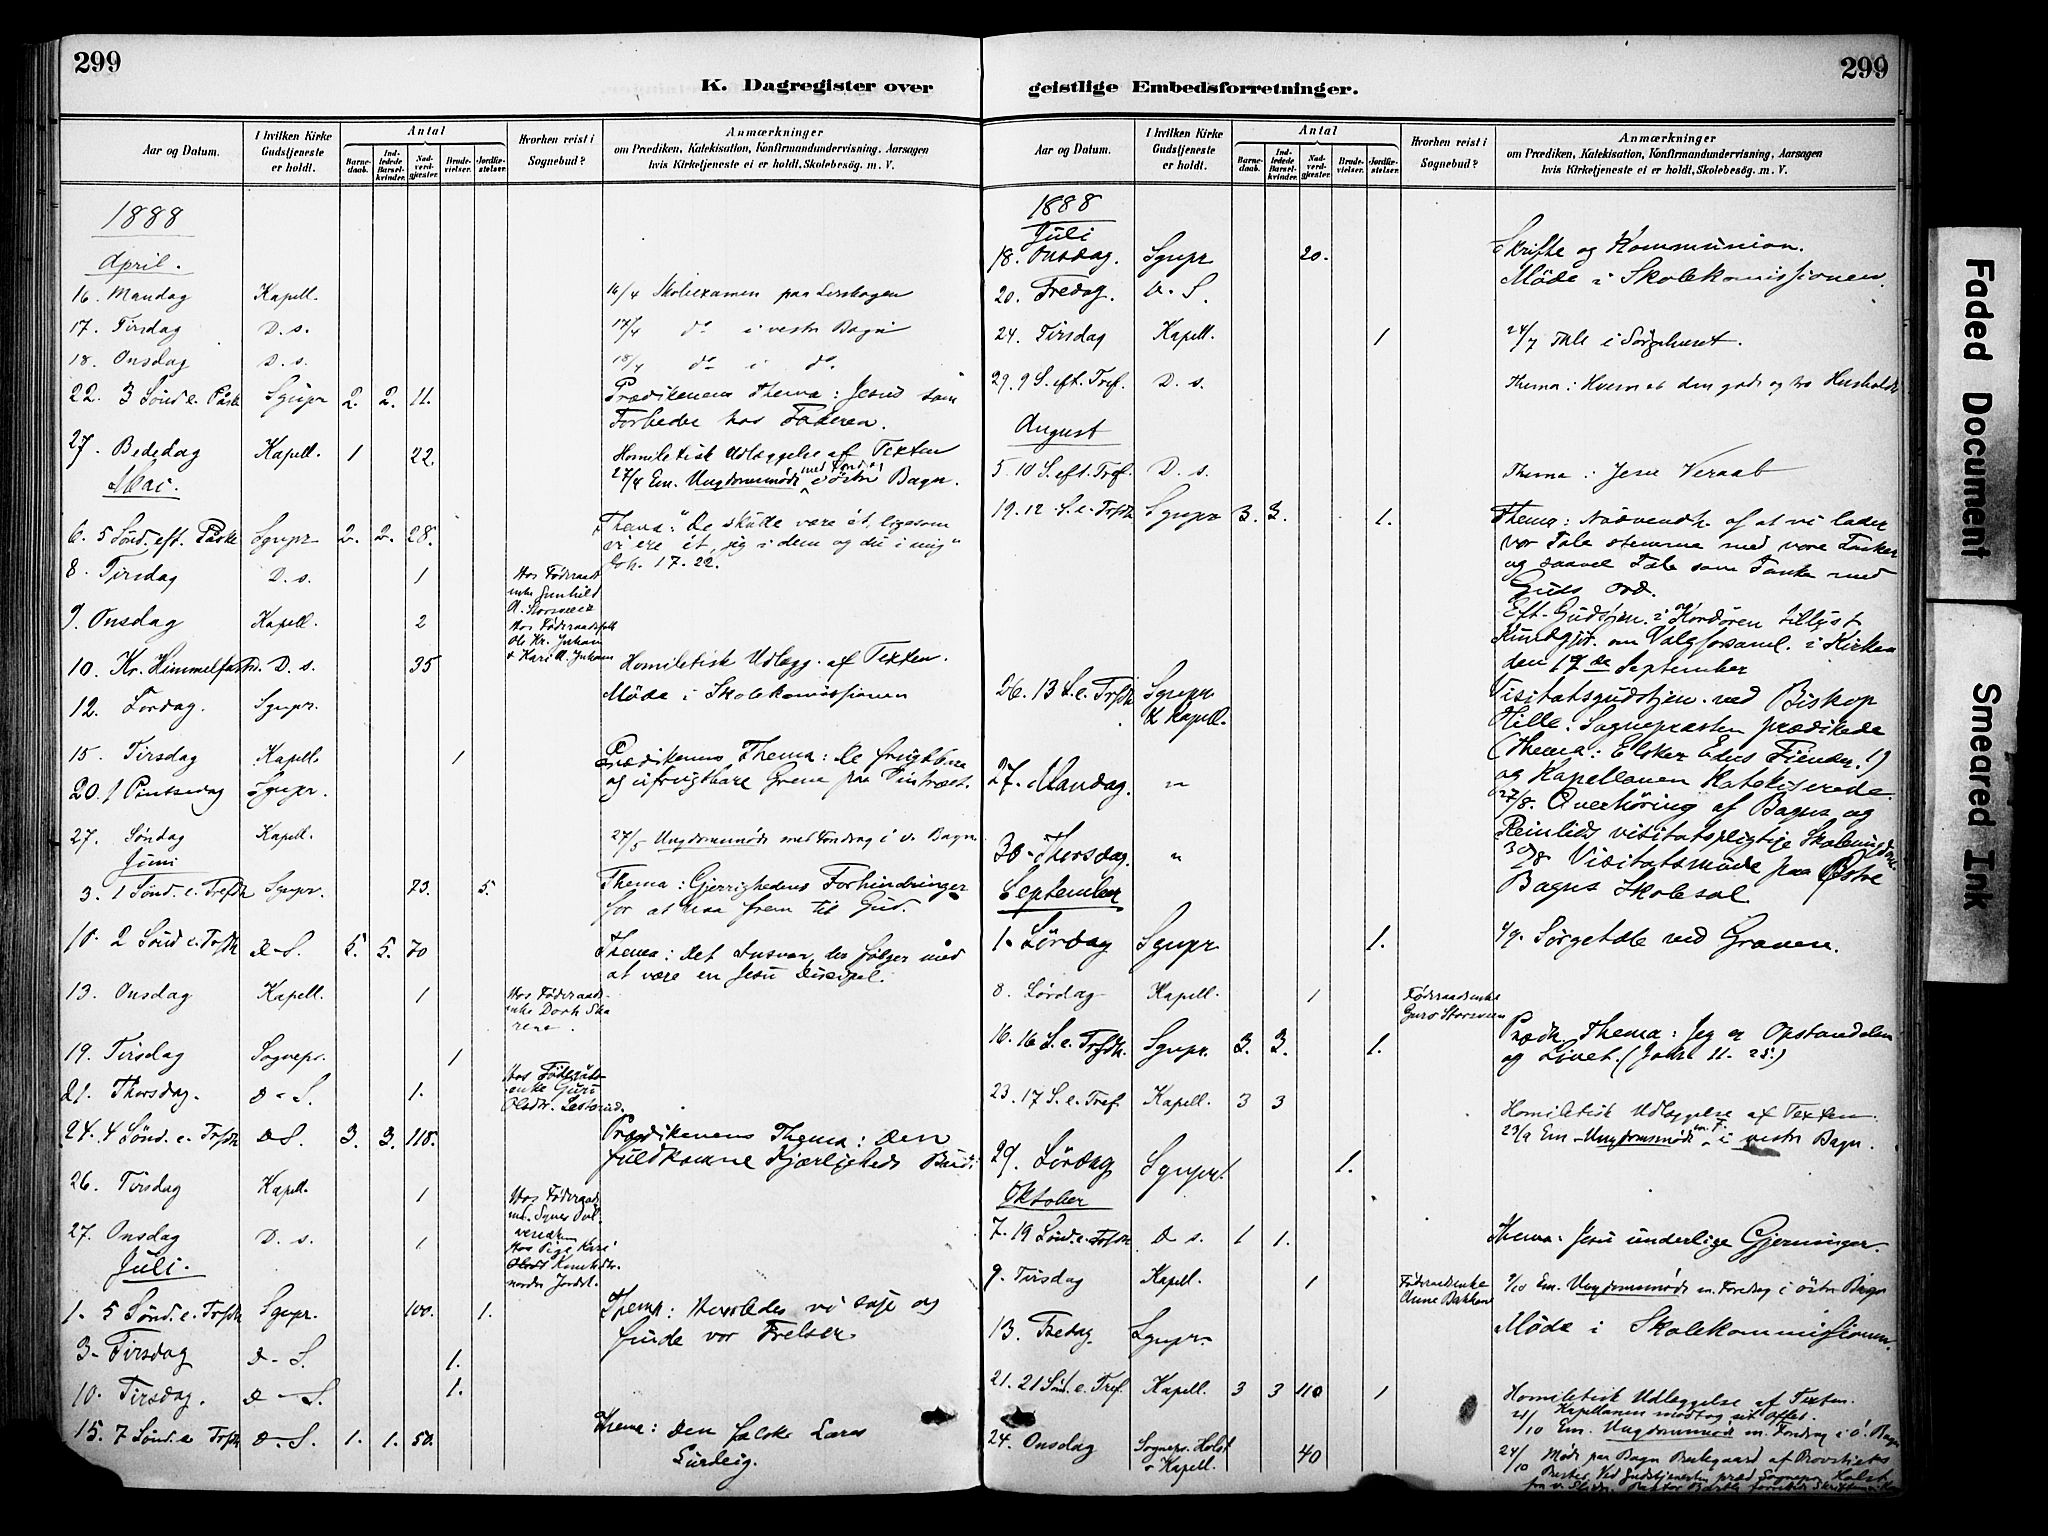 299
K. Dagregister over
Aar og Datum.
I hvilken Kirke Gudstjeneste er holdt.
Antal
Barne-daab.
Ind-ledede Barsel-kvinder.
Nad-verd-gjester.
Brude-vielser.
Jordfæ-stelser.
Hvorhen reist i Sognebud?
Anmærkninger
om Prædiken, Katekisation, Konfirmandundervisning, Aarsagen
hvis Kirketjeneste ei er holdt, Skolebesøg. m. V.
1888
April.
16. Mandag Kapell. 16/4 Skoleexamen paa
17. Tirsdag D. s. 17/4 do i vestr Bagn
18. Onsdag D. s. 18/4 do i do
22. 3 Sønd e. Påske Sgnpr 2. 2. 11. Prædikenens Thema: Jesus som
Forbeder hos Faderen.
27. Bededag Kapell. 1 22. Homiletisk Udlæggelse af Texten
27/4 Em. Ungdomsmøde med Fordr. i østre Bagn.
Mai.
6. 5 Sønd. eft. Påske Sgnpr 2. 2. 28. Thema: "De skulle være ét, ligesom
vi ere ét, jeg i dem og du i mig"
Joh. 17. 22.
8. Tirsdag D. s. 1 Hos Føderaads
enke Gunhild
9. Onsdag Kapell. 2 Hos Føderaadsfolk
Ole Kr. Juham
+ Kari A. Juham
10. Kr. Himmelfartsd. D. s. 35 Homiletisk Udlægg. af Texten.
12. Lørdag. Sgnpr. Møde i Skolekomissionen
15. Tirsdag Kapell. 1
20. 1 Pintsedag Sgnpr. Prædikenens Thema: De frugtbare
og ufrugtbare Grene paa Vintræet.
27. Søndag Kapell. 27/5 Ungdomsmøde med Foredrag i v. Bagn
Juni
3. 1 Sønd. e. Trefdh Sgnpr. 73. 5. Thema: Gjerrighedens Forhindringer
for at naa frem til Gud.
10. 2 Sønd e. Trfdh D-S. 5. 5. 70 Thema: Det Ansvar, der følger med
at være en Jesu Discipel.
13. Onsdag Kapell. 1 Hos Føderaads-
enke Dorth Ska
rene.
19. Tirsdag Sognepr. 1
21. Thorsdag. D-S. 1. Hos
enke Guri
Olsdtr.
24. 4 Sønd. e. Trfdh D.S. 3. 3. 118. Prædikenens Thema: Den
fuldkomne Kjærligheds Bud.
26. Tirsdag Kapell. 1 Hos Føderaads
27. Onsdag D. s. 1 Hos Pige Kari
Juli.
1. 5 Sønd. e. Trfdh Sgnpr. 100. 1. Thema: Hvorledes vi søge og
finde vor Frelser.
3. Tirsdag D-S. 1.
10. Tirsdag. D-S. 1.
15. 7 Sønd. e Trfdh D-S. 1. 1. 50. Thema: Den falske Læres
Surdeig.
299
geistlige Embedsforretninger.
Aar og Datum.
I hvilken Kirke Gudstjeneste er holdt.
Antal
Barne-daab.
Ind-ledede Barsel-kvinder.
Nad-verd-gjester.
Brude-vielser.
Jordfæ-stelser.
Hvorhen reist i Sognebud?
Anmærkninger
om Prædiken, Katekisation, Konfirmandundervisning, Aarsagen
hvis Kirketjeneste ei er holdt, Skolebesøg. m. V.
1888
Juli
18. Onsdag. Sgnpr 20. Skrifte og Kommunion.
20. Fredag. D. S. Møde i Skolekomissionen.
24. Tirsdag Kapell. 1 24/7 Tale i Sørgehuset.
29. 9 S. eft. Tref. D. s. Thema: Hvem er den gode og tro Husholder
August
5. 10 S. eft. Tref. D. s. Thema: Jesu Veraab
19. 12. S. e. Trfdh Sgnpr 3. 3. 1. Thema: Nødvendh. af at vi lader
vor Tale stemme med vore Tanker
og saavel Tale som Tanke med
Guds Ord.
Eft. Gudstjen. i Kordøren tillyst
Kundgjør. om Valgforsaml. i Kirken
den 17de September
26. 13 S. e. Trfdh Sgnpr
& Kapell. Visitatsgudstjen. ved Biskop
Hille: Sognepresten prædikede
(Thema: Elsker Eders Fiender!)
og Kapellanen Katekiserede.
27. Mandag. " 27/8. Overhøring af Bagns og
Reinlids visitatspligtige Skoleungdom
30. Thorsdag. " 30/8 Visitatsmøde paa Østre
Bagns Skolesal
September
1. Lørdag Sgnpr 1. 1/9. Sørgetale ved Graven.
8. Lørdag Kapell. 1 Føderaadsenke
Guro
16. 16 S. e. Trfdh. Sgnpr. 3. 3. 1. Prædk. Thema: Jeg er Opstandelsen
og Livet. (Joh. 11. 25.)
23. 17 S. e. Tref. Kapell. 3 3 Homiletisk Udlæggelse af Texten.
23/9 Em - Ungdomsmøde m. F. i vestre Bagn.
29. Lørdag Sgnpr. 1.
Oktober
7. 19 Sønd. e. Trfdh. D s. 1 1. Thema: Jesu underlige Gjerninger.
9. Tirsdag Kapell. 1 Føderaadsenke
Anne Bakken 9/10 Em. Ungdomsmøde m. Foredrag i østre Bagn
13. Fredag Sgnpr. Møde i Skolekommissionen.
21. 21 Sønd. e. Tref. Kapell. 3 3 40 1 Homiletisk Udlæggelse af Texten.
Kapellanen modtog sit Offer.
21/10 Em. Ungdomsmøde m. Foredrag i ø. Bagn
24. Onsdag Sognepr. Holst
+ Kapell. 40 24/10 Møde paa Bagn Prestegaard af Provstiets
Prester. Ved Gudstjenesten præd. Sognepr. Holst
Faded Document
Smeared Ink